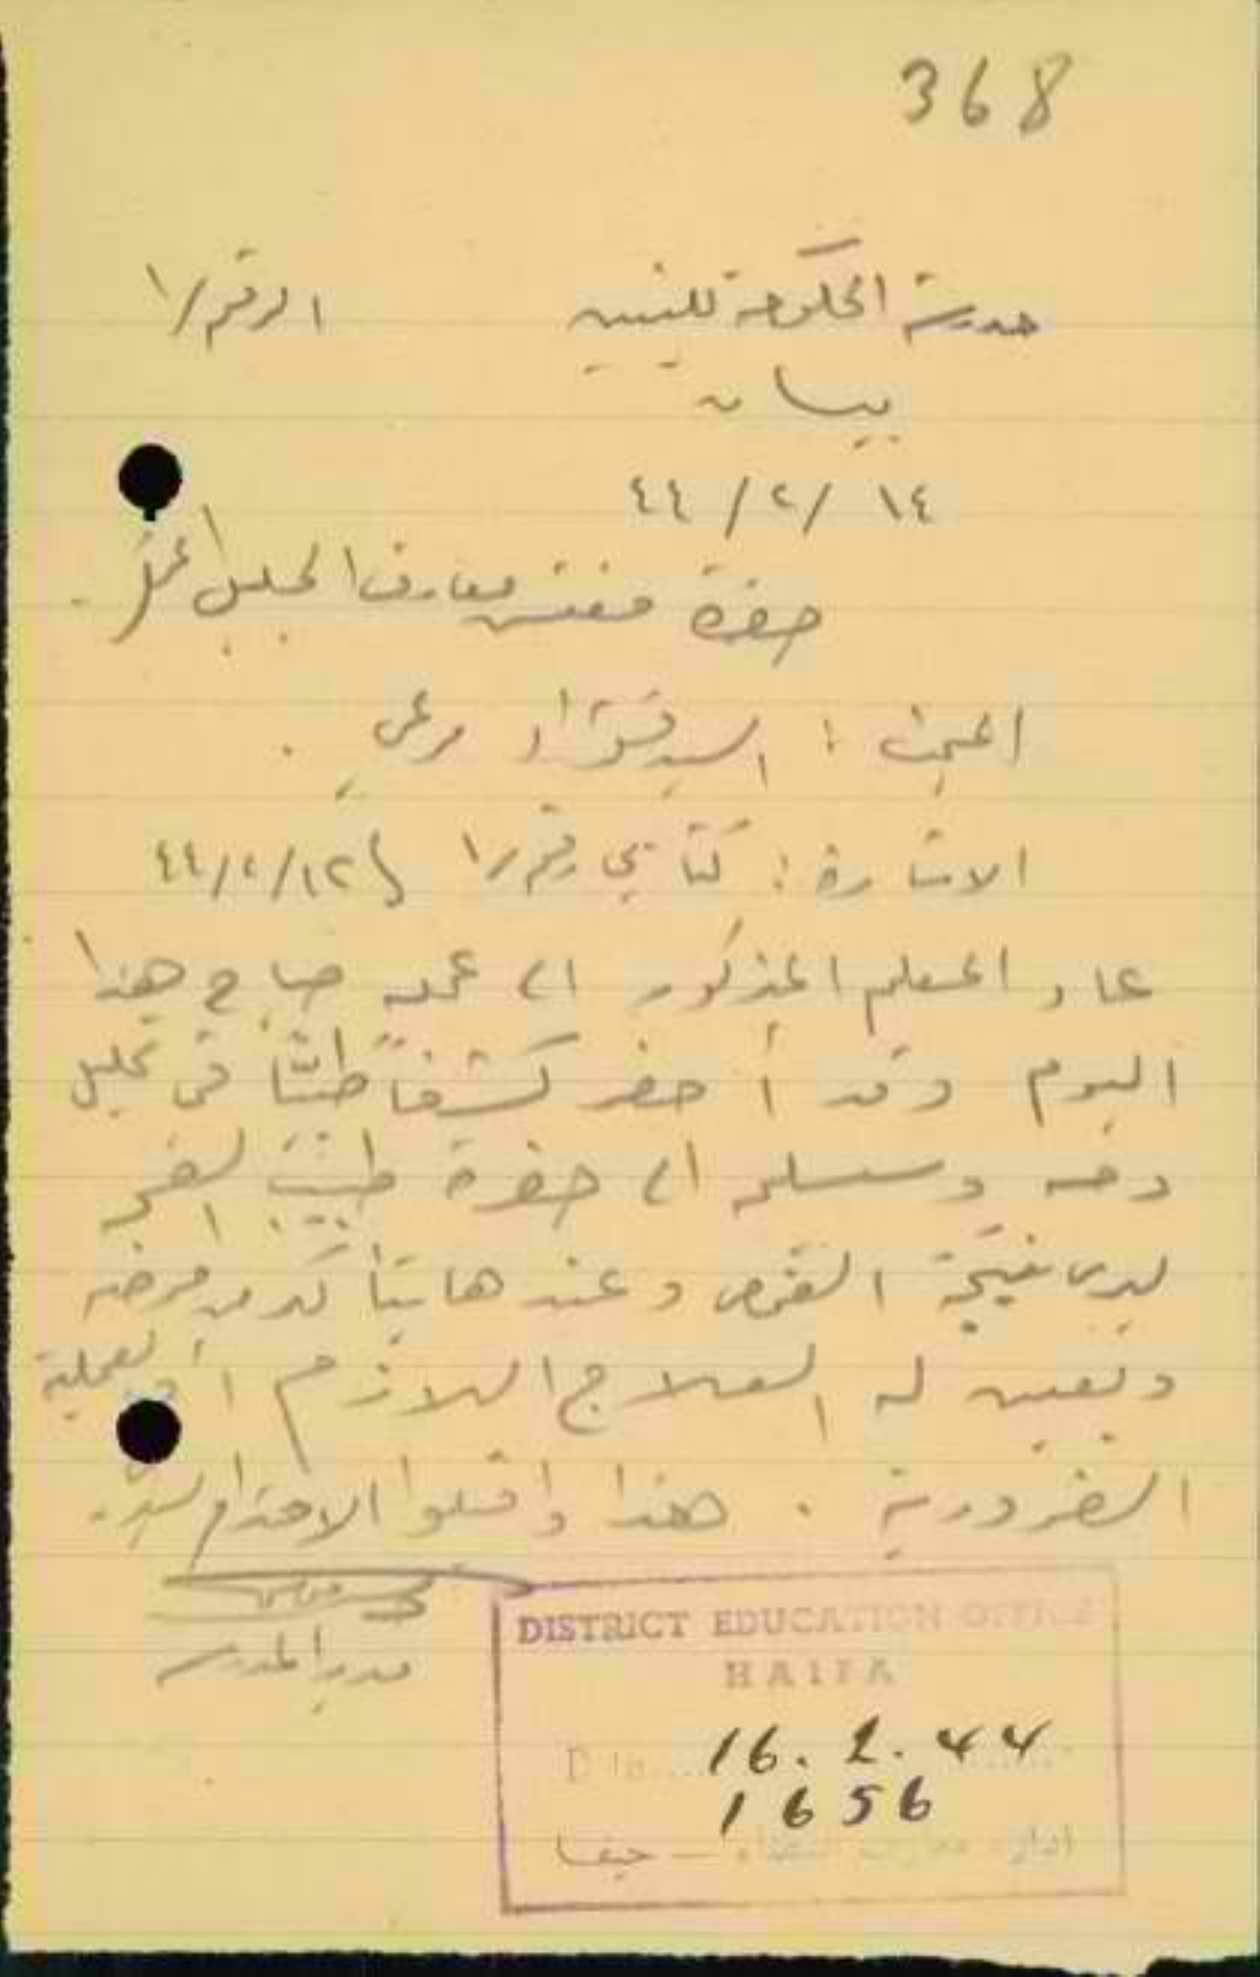 368
مدرسة الحكومة للبنين الرقم /١
بيسان
١٤ /٢/ ٤٤
حضرة مفتش معارف الجليل المحترم.
المبحث : السيد فؤاد مرعي .
الاشارة : كتابي رقم /١ ١٢/٢/٤٤
عاد المعلم المذكور الى عمله صباح هذا
اليوم وقد أحضر كشفاً طبيّاً في تحليل
دمه وسيسلمه الى حضرة طبيب
ليرى نتيجة الفحص وعندها يتأكد من مرضه
ويعين له العلاج اللازم أو العملية
الضرورية . هذا واقبلوا الاحترام سيدي.
مدير المدرسة
DISTRICT EDUCATION OFFICE
HAIFA
Date 16.2.44
1656
ادارة معارف – حيفا